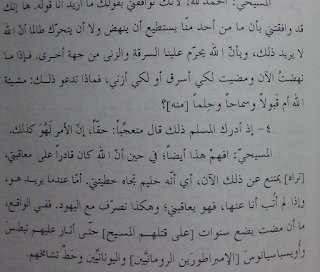 المسيحيّ: الحمد لله، لأنّك توافقني بقولك ما أريد أنا قوله. ها إنك
قد وافقتني بأن ما من أحد منّا يستطيع أن ينهض ولا أن يتحرّك طالما أنّ الله
لا يريد ذلك، وبأنّ الله يحرّم علينا السرقة والزنى من جهة أخرى. فإذا ما
نهضتُ الآن ومضيت لكي أسرق أو لكي أزني، فماذا تدعو ذلك: مشيئة
الله أم قَبولاً وسماحاً وحِلماً [منه]؟
٤ – إذ أدرك المسلم ذلك قال متعجّباً: حقّاً، إنّ الأمر لَهُوَ كذلك.
المسيحيّ: افهمْ هذا أيضاً: في حين أنّ الله كان قادراً على معاقبتي،
[تراه] يمتنع عن ذلك الآن، أي أنّه حليم تجاه خطيئتي. أمّا عندما يريد هو،
وإذا لم أتب أنا عنها، فهو يعاقبني؛ وهكذا تصرّف مع اليهود. ففي الواقع،
ما أن مضت بضع سنوات [على قتلهم المسيح] حتّى أثار عليهم تيطُسَ
وأويسباسيانوسَ [الإمبراطورَين الرومانيَّين] واليونانيِّين وحَطَّ تشامخهم.